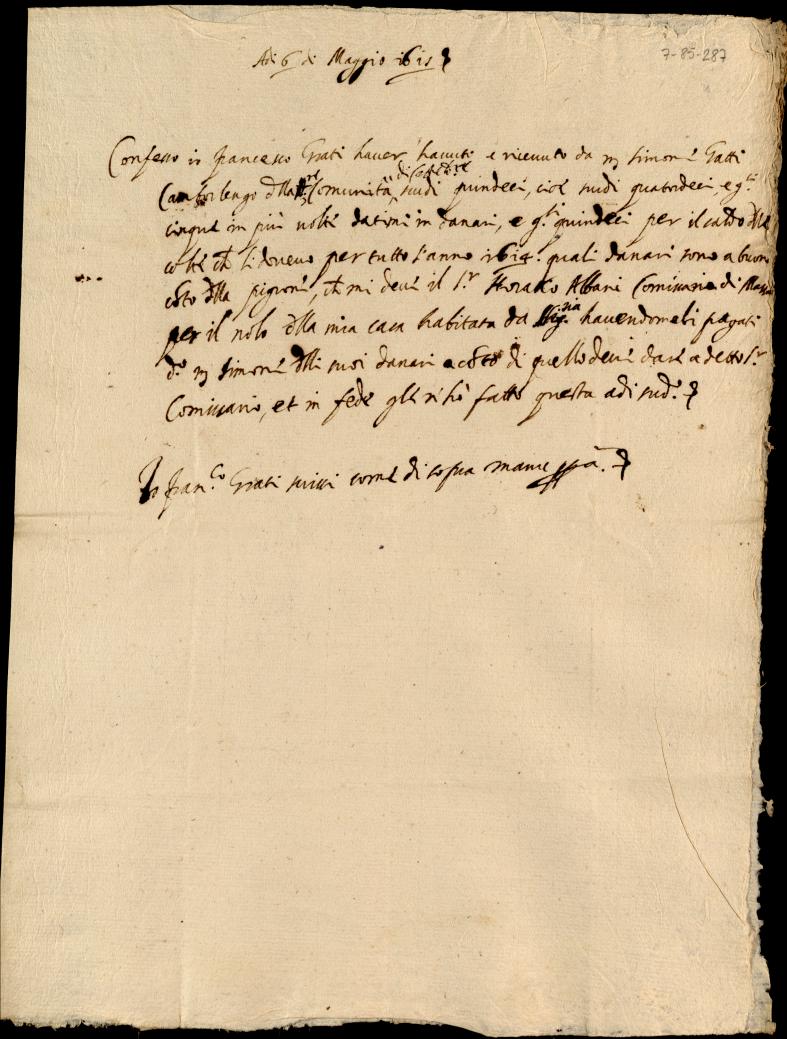 Adi 6 di Maggio 1615
7-85-287
Confesso io francesco Grati haver havuti e ricevuto da m simonè Gatti
Camborlengo dlla Comunità, scudi quindeci, cioè scudi quatordeci, e g.ti
cinque in più volte datimi in danari, e g.ti quindeci per il saldo dlle
colte ch li devevo per tutto l'anno 1614. quali danari sono a buon
coto dlla pigionè, ch mi devè il s.r Horatio Albani Comissario di
per il nolo dlla mia casa habitata da havendomeli pagati
d.o m simonè dlli suoi danari a coto di quello devè dare a detto s.r
Comissario, et in fedè gli n'hò fatto questa adi sud.o
Io fran.co Grati scrissi comè di sopra manu ppa.